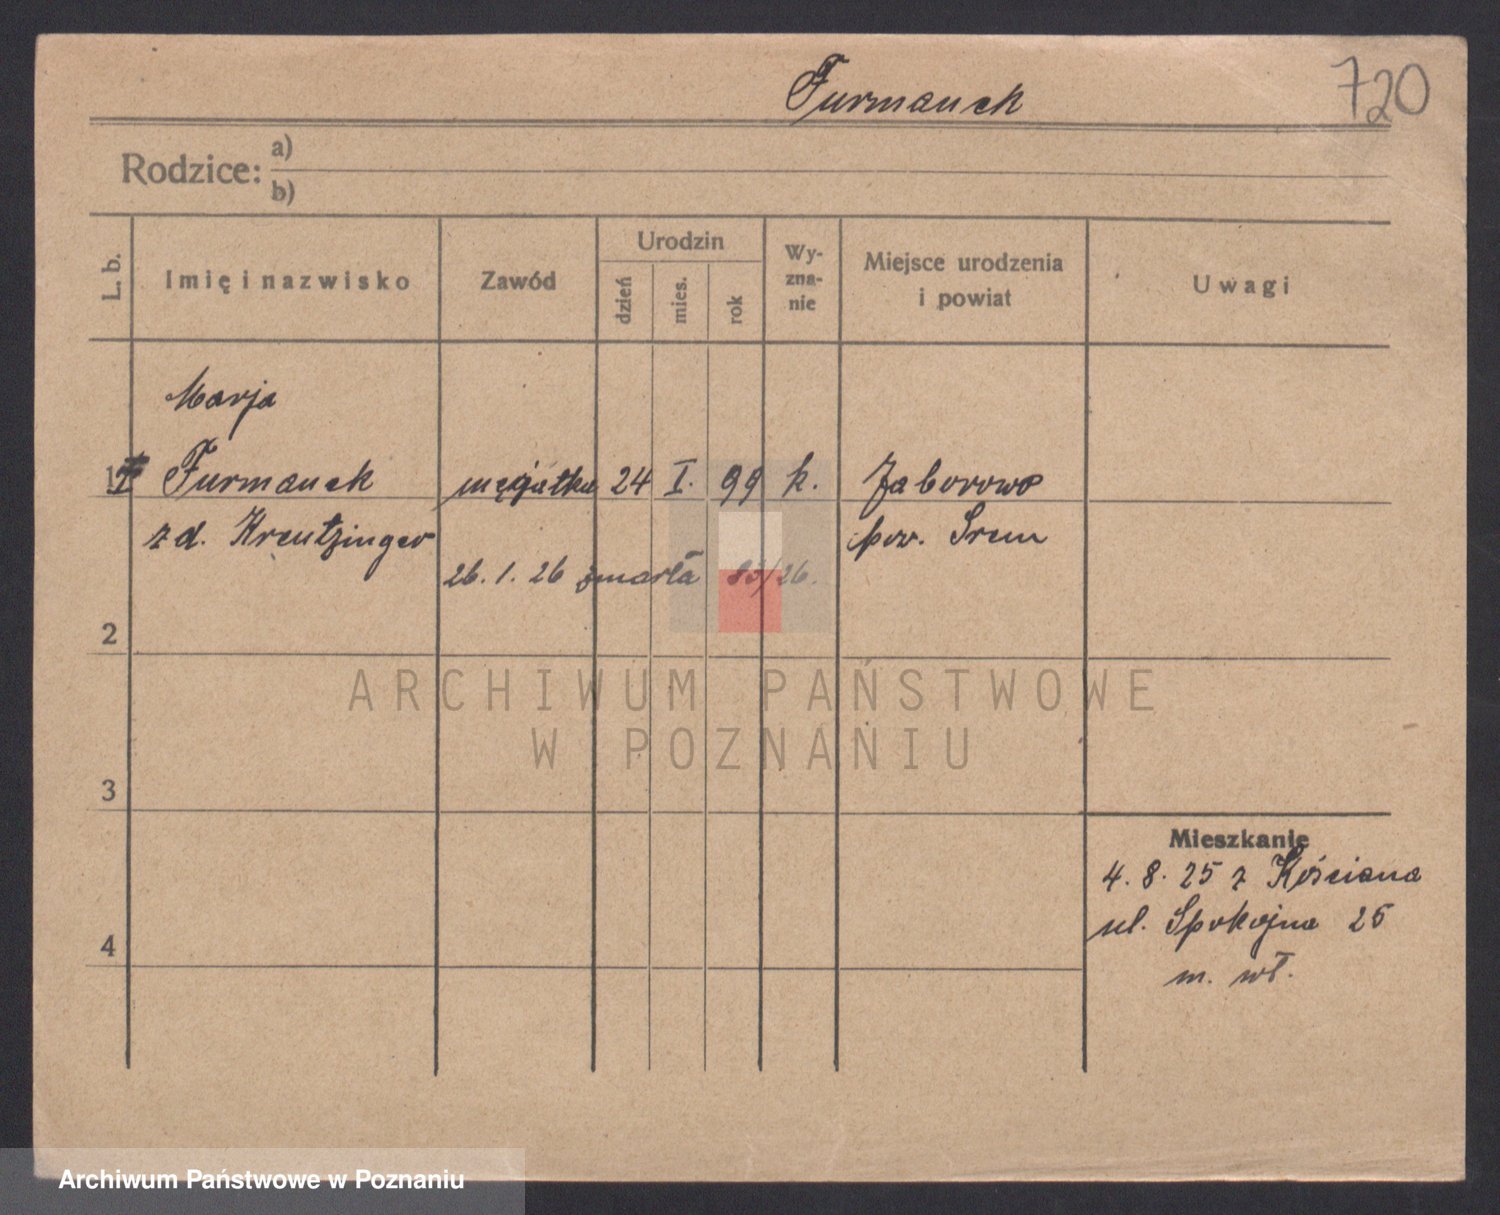 Furmanek
720
Rodzice: a)
b)
L. b.
Imię i nazwisko
Zawód
Urodzin
dzień
mies.
rok
Wy-
zna-
nie
Miejsce urodzenia
i powiat
Uwagi
Marja
1 Furmanek mężatka 24 I. 99 k. Zaborowo
z d. Kreutzinger pow. Śrem
26. 1. 26 zmarła 83/26.
2
ARCHIWUM PAŃSTWOWE
W POZNANIU
3
Mieszkanie
4. 8. 25 z Kościana
ul. Spokojna 25
4
m. wł.
Archiwum Państwowe w Poznaniu